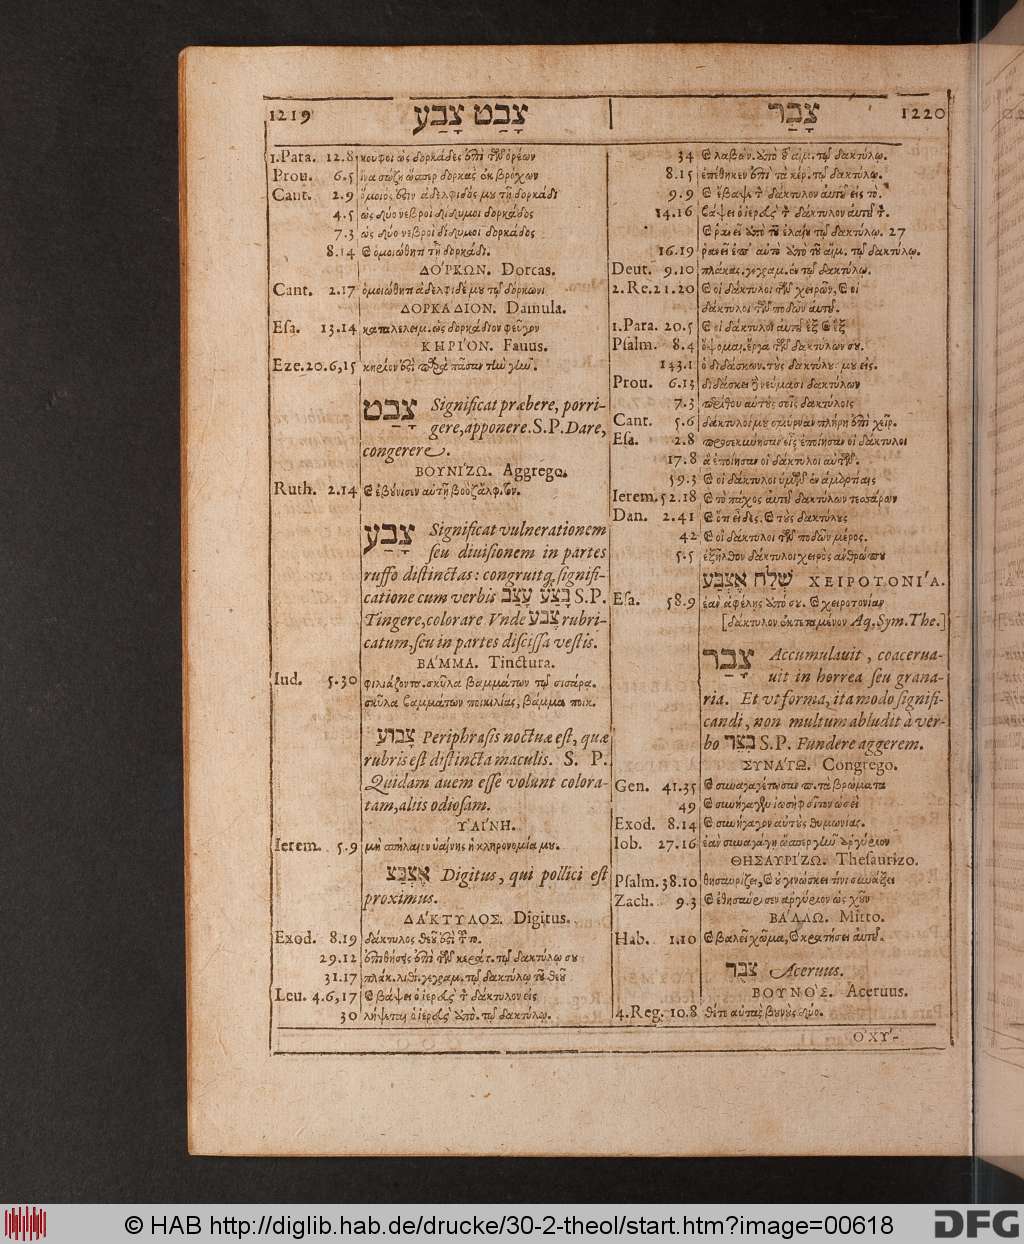 1219 צָבַט צָבַע
1.Para. 12.8 κουφοι ὡς δορκάδες ἐπὶ τῶν ὀρέων
Prou. 6.5 ἵνα σώζῃ ὥσπερ δορκὰς ἐκ βρόχων
Cant. 2.9 ὅμοιός ἐστιν ἀδελφιδός μου τῇ δορκάδι
4.5 ὡς δύο νεβροὶ δίδυμοι δορκάδος
7.3 ὡς δύο νεβροὶ δίδυμοι δορκάδος
8.14 καὶ ὁμοιώθητι τῇ δορκάδι.
ΔΟΡΚΩΝ. Dorcas.
Cant. 2.17 ὁμοιώθητι ἀδελφιδέ μου τῷ δόρκωνι
ΔΟΡΚΑΔΙΟΝ. Damula.
Esa. 13.14 καταλελειμ. ὡς δορκάδιον φεῦγον
ΚΗΡΙΟΝ. Fauus.
Eze. 20.6,15 κηρίον ἐστὶ παρὰ πᾶσαν τὴν γῆν.
צָבַט Significat præbere, porri-
gere, apponere. S.P. Dare,
congerere.
ΒΟΥΝΙΖΩ. Aggrego.
Ruth. 2.14 καὶ ἐβούνισεν αὐτῇ βοὸζ ἄλφιτον.
צָבַע Significat vulnerationem
seu diuisionem in partes
ruffo distinctas: congruitq; signifi-
catione cum verbis בָּצַע עָצַב S.P.
Tingere, colorare Vnde צֶבַע rubri-
catum, seu in partes discissa vestis.
ΒΑΜΜΑ. Tinctura.
Iud. 5.30 φιλιάζοντα. σκῦλα βαμμάτων τῷ σισάρα.
σκῦλα βαμμάτων ποικιλίας, βάμμα ποικ.
צָבוּעַ Periphrasis noctuæ est, quæ
rubris est distincta maculis. S. P.
Quidam auem esse volunt colora-
tam, aliis odiosam.
ΥΑΙΝΗ.
Ierem. 5.9 μὴ σπήλαιον ὑαίνης ἡ κληρονομία μου.
אֶצְבַּע Digitus, qui pollici est
proximus.
ΔΑΚΤΥΛΟΣ. Digitus.
Exod. 8.19 δάκτυλος θεοῦ ἐστὶ
29.12 ἐπιθήσεις ἐπὶ τῶν κεράτ. τῷ δακτύλῳ σου
31.17 πλάκ. λιθί. γεγραμ. τῷ δακτύλῳ τοῦ θεοῦ
Leu. 4.6,17 καὶ βάψει ὁ ἱερεὺς τὸν δάκτυλον εἰς
30 λήψεται ὁ ἱερεὺς ἀπὸ. τῷ δακτύλῳ.
צָבַר 1220
34 καὶ λαβὼν. ἀπὸ τοῦ αἵμ. τῷ δακτύλῳ.
8.15 ἐπέθηκεν ἐπὶ τὰ κέρ. τῷ δακτύλῳ.
9.9 καὶ ἔβαψε τὸν δάκτυλον αὐτοῦ εἰς τὸ.
14.16 βάψει ὁ ἱερεὺς τὸν δάκτυλον αὐτοῦ τὸν.
καὶ ῥανεῖ ἀπὸ τοῦ ἐλαίου τῷ δακτύλῳ. 27
16.19 ῥανεῖ ἐπ' αὐτὸ ἀπὸ τοῦ αἵμ. τῷ δακτύλῳ.
Deut. 9.10 πλάκας. γεγραμ. ἐν τῷ δακτύλῳ.
2.Re. 21.20 καὶ οἱ δάκτυλοι τῶν χειρῶν, καὶ οἱ
δάκτυλοι τῶν ποδῶν αὐτοῦ.
1.Para. 20.5 καὶ οἱ δάκτυλοι αὐτοῦ ἓξ καὶ ἓξ
Psalm. 8.4 ὄψομαι. ἔργα τῶν δακτύλων σου.
143.1 ὁ διδάσκων. τοὺς δακτύλους μου εἰς.
Prou. 6.13 διδάσκει ἐννεύμασι δακτύλων
7.3 περίθου αὐτοὺς σοῖς δακτύλοις
Cant. 5.6 δάκτυλοί μου σμύρναν πλήρη ἐπὶ χεῖρ.
Esa. 2.8 προσεκύνησαν οἷς ἐποίησαν οἱ δάκτυλοι
17.8 ἃ ἐποίησαν οἱ δάκτυλοι αὐτῶν.
59.3 καὶ οἱ δάκτυλοι ὑμῶν ἐν ἁμαρτίαις
Ierem. 52.18 καὶ τὸ πάχος αὐτοῦ δακτύλων τεσσάρων
Dan. 2.41 καὶ ὅτι εἶδες. καὶ τοὺς δακτύλους
42 καὶ οἱ δάκτυλοι τῶν ποδῶν μέρος.
5.5 ἐξῆλθον δάκτυλοι χειρὸς ἀνθρώπου
שְׁלַח אֶצְבַּע ΧΕΙΡΟΤΟΝΙΑ.
Esa. 58.9 ἐὰν ἀφέλῃς ἀπό σου. καὶ χειροτονίαν
[δάκτυλον ἐκτεταμένον Aq. Sym. The.]
צָבַר Accumulauit, coacerua-
uit in horrea seu grana-
ria. Et vt forma, ita modo signifi-
candi, non multum abludit à ver-
bo בָּצַר S.P. Fundere aggerem.
ΣΥΝΑΓΩ. Congrego.
Gen. 41.35 καὶ συναγαγέτωσαν π. τὰ βρώματα
49 καὶ συνήγαγεν ἰωσὴφ σῖτον ὡσεὶ
Exod. 8.14 καὶ συνήγαγον αὐτοὺς θιμωνίας.
Iob. 27.16 ἐὰν συναγάγῃ ὥσπερ γῆν ἀργύριον
ΘΗΣΑΥΡΙΖΩ. Thesaurizo.
Psalm. 38.10 θησαυρίζει, καὶ οὐ γινώσκει τίνι συνάξει
Zach. 9.3 καὶ ἐθησαύρισεν ἀργύριον ὡς χοῦν
ΒΑΛΛΩ. Mitto.
Hab. 1.10 καὶ βαλεῖ χῶμα, καὶ κρατήσει αὐτοῦ.
צִבֻּר Aceruus.
ΒΟΥΝΟΣ. Aceruus.
4.Reg. 10.8 θέτε αὐτὰς βουνοὺς δύο.
ΟΧΥ-
© HAB http://diglib.hab.de/drucke/30-2-theol/start.htm?image=00618
DFG